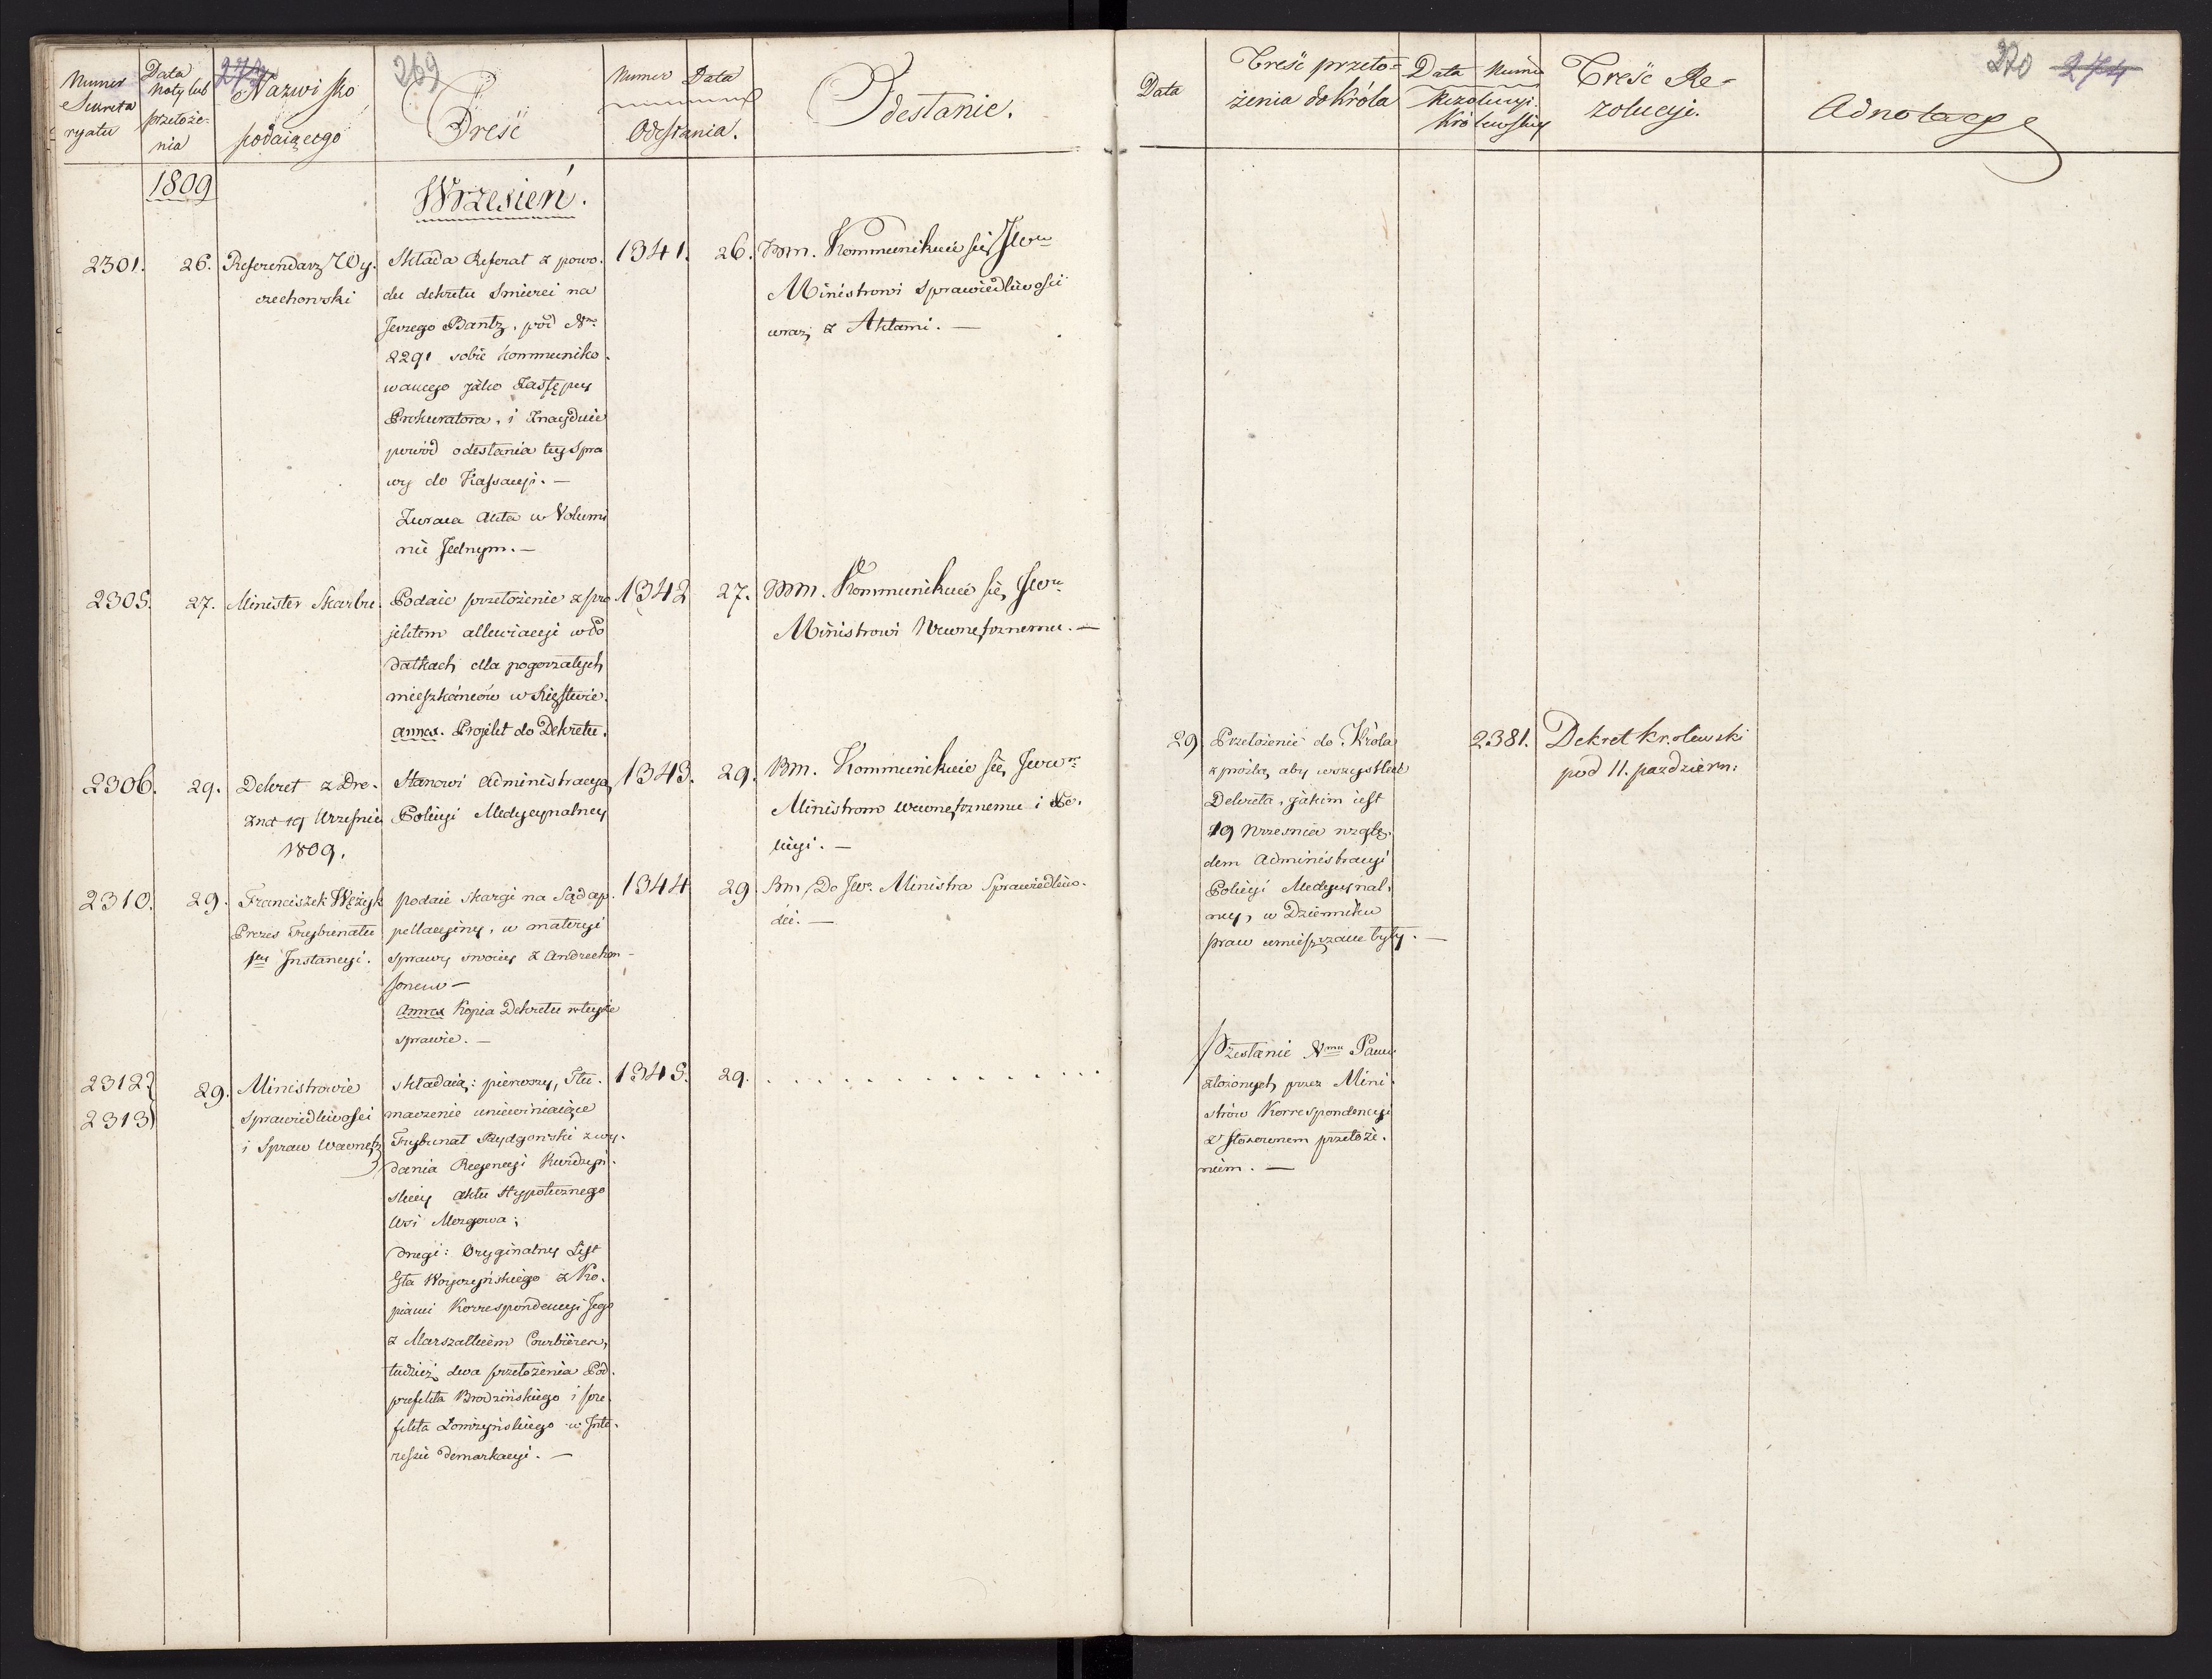 Numer Sekreta ryatu
Data Noty lub przełoże- nia
273
Nazwisko podaiącego
269
Treść
Numer Data
Odesłania.
Odesłanie.
Data
Treść przeło= żenia do Króla
Data Numer
Rezolucyi Królewskiey
Treść Re- zolucyi.
270 274
Adnotacye
1809
Wrzesień.
2301. 26.
Referendarz Wy.
czechowski
Składa Referat z powo.
du dekretu śmierci na
Jerzego Bantz, pod Nro
2291 sobie kommuniko.
wanego jako Zastępcy
Prokuratora, i Znayduie
powód odesłania tey spra
wy do Kassacyi. —
Zwraca Akta w Volumi
nie Jednym. —
1341. 26.
Bm. Kommunikuie się JWu
Ministrowi Sprawiedliwości
wraz z Aktami. —
2305. 27. Minister Skarbu.
Podaie przełożenie z pro
jektem allewiacyi w Po
datkach dla pogorzałych
mieszkańców w Xięstwie.
annex. Projekt do Dekretu.
1342 27.
Bm. Kommunikuie się JWu
Ministrowi Wewnętrznemu. —
2306. 29.
Dekret z Dre.
zna 19 Wrześnie
1809.
Stanowi Administracyą
Policyi Medycynalney
1343. 29.
Bm. Kommunikuie się JWW
Ministrom Wewnętrznemu i Po.
licyi. —
2310. 29.
Franciszek Wężyk
Prezes Trybunału
Iey Instancyi.
podaie skargi na Sąd ap.
pellacyiny, w materyi
sprawy swoiey z Andrechon-
sonem —
Annex Kopia Dekretu w teyże
sprawie. —
1344 29
Bm Do JWo Ministra Sprawiedliwo.
ści. —
2312
2313
29.
Ministrowie
Sprawiedliwości
i Spraw Wewnętrz
składaią: pierwszy, Tłu.
maczenie uniewiniaiące
Trybunał Bydgoski z wy.
dania Regencyi Kwidzyń.
skiey Aktu Hypotecznego
Wsi Mozgowa;
drugi: Oryginalny List
Gła Woyczyńskiego z Ko.
piami Korrespondencyi Jego
z Marszałkiem Courbierem,
tudzież dwa przełożenia Pod.
prefekta Brodzińskiego i Pre.
fekta Łomżyńskiego w Inte.
ressie Demarkacyi. —
1345. 29. . . . . . . . . . . . . . . .
29
Przełożenie do Króla
z prośbą, aby wszystkie
Dekreta, jakim iest
19 Września wzglę.
dem Administracyi
Policyi Medycynal.
ney, w Dzienniku
praw umieszczane były. —
2381.
Dekret krolewski
pod 11. październ:
Przesłanie Nmu Panu
złożonych przez Mini.
strów Korrespondencyi
z Stosownem przełoże.
niem. —